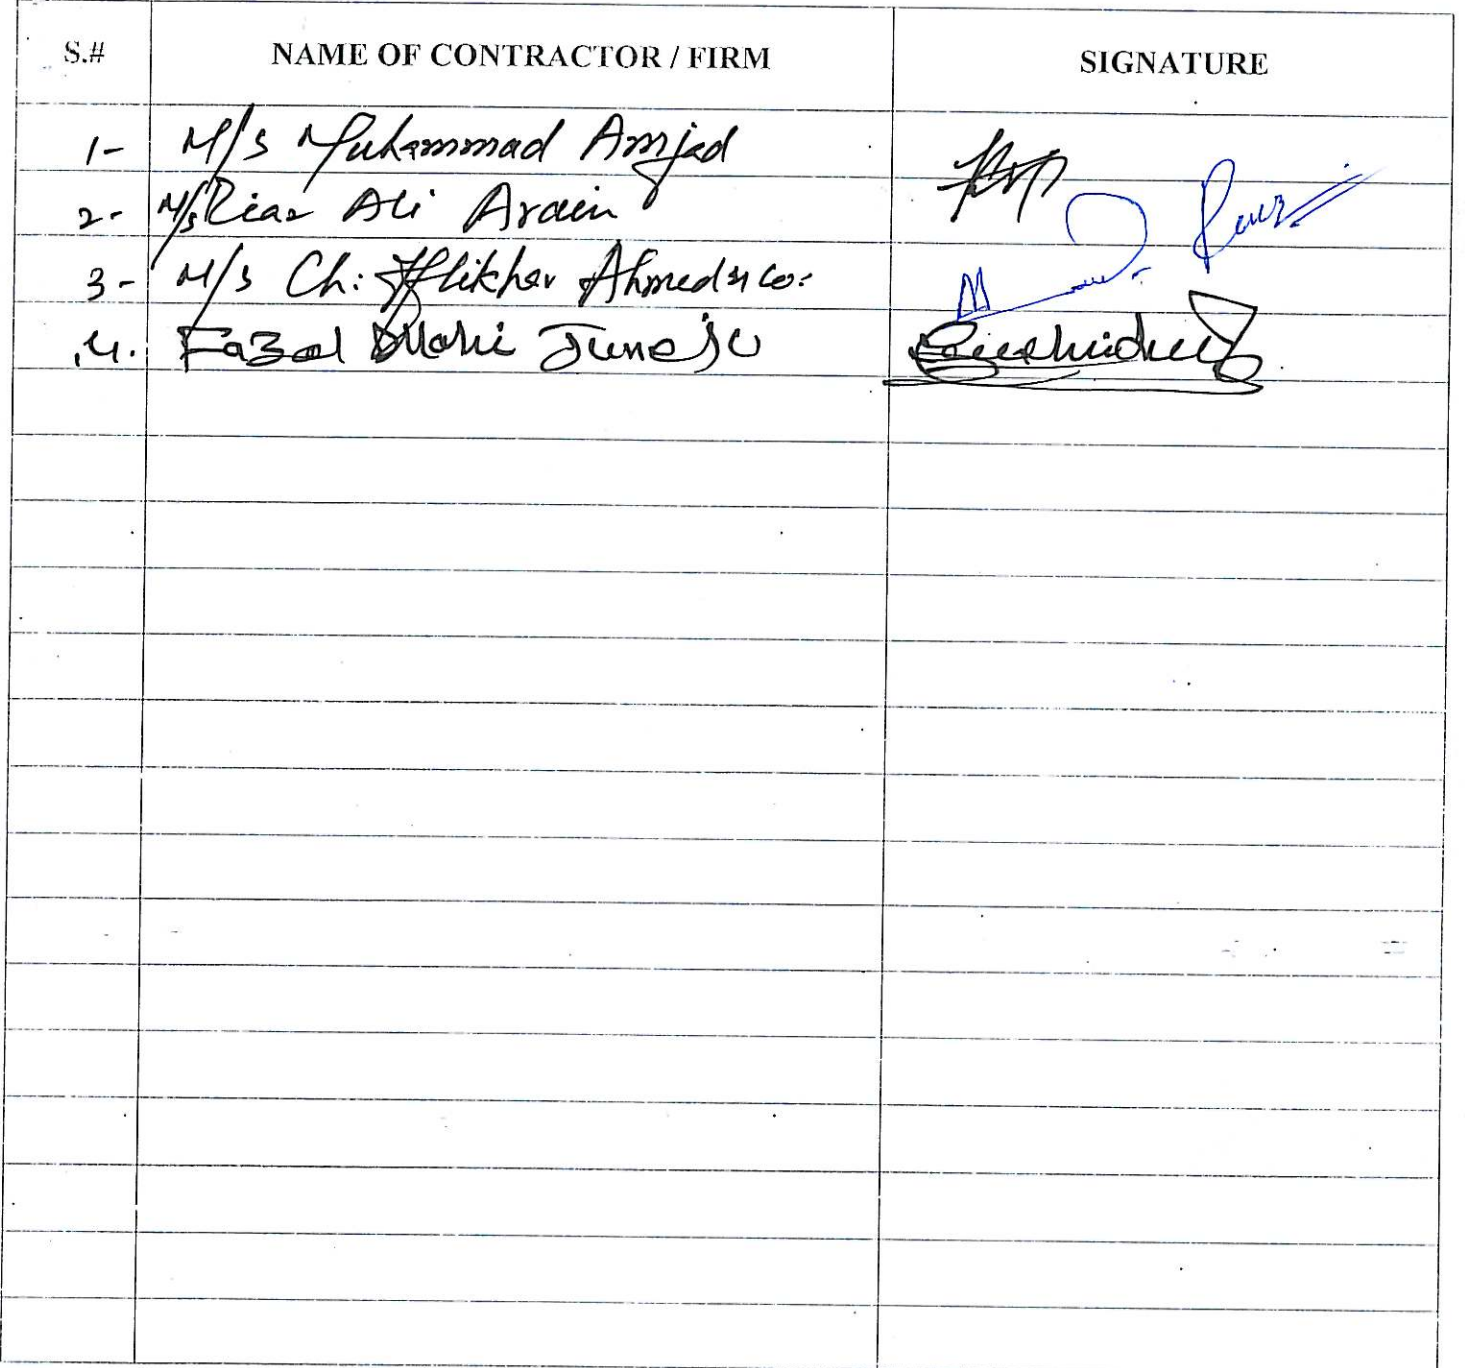 S.# NAME OF CONTRACTOR / FIRM SIGNATURE
1- M/s Muhammad Amjad
2- M/s Riaz Ali Arain
3- M/s Ch: Iftikhar Ahmed & Co:
4. Fazal Ellahi Junejo